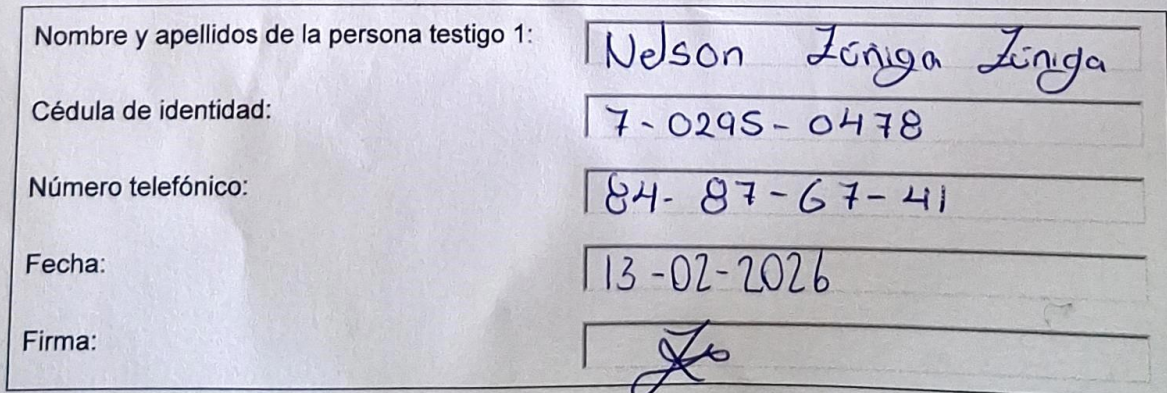 Nombre y apellidos de la persona testigo 1: Nelson Zúñiga Zúñiga
Cédula de identidad: 7-0295-0478
Número telefónico: 84-87-67-41
Fecha: 13-02-2026
Firma: